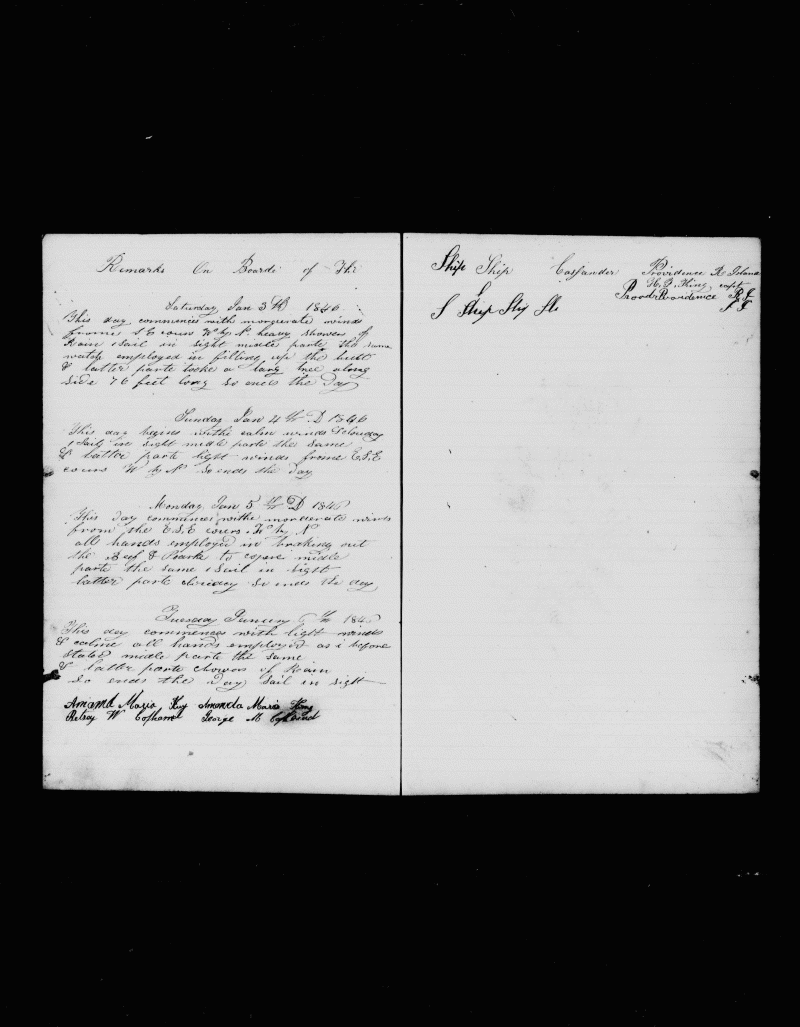 Remarks On Board of The
Saturday Jan 3th 1846
This day commences with morderate winds
frome S E cours W by N heavy showers of
Rain 1 Sail in sight midle parte the same
watch employed in filling up the
& latter parte tooke a long tree along
side 76 feet long so ends the Day
Sunday Jan 4th D 1846
This day begins withe calm winds & clouday
1 Sail in sight midle parte the same
& latter parte light winds frome E.S.E
cours W by N So ends the Day
Monday Jan 5th D 1846
This day commences withe morderate winds
from the E.S.E cours W by N
all hands employed in braking out
the Beef & Poarke to middle
parte the same 1 Sail in sight
latter parte So ends the day
Tuesday 6th 1846
This day commences with light winds
& calme all hands employed as i before
stated midle parte the same
& latter parte showers of Rain
So ends the Day Sail in sight
Amamd Maria King Amanda Maria King
Betsey W George M
Ship Ship Cassander Providence R Island
H. F. King, capt
S Ship Ship Sh Providence R I